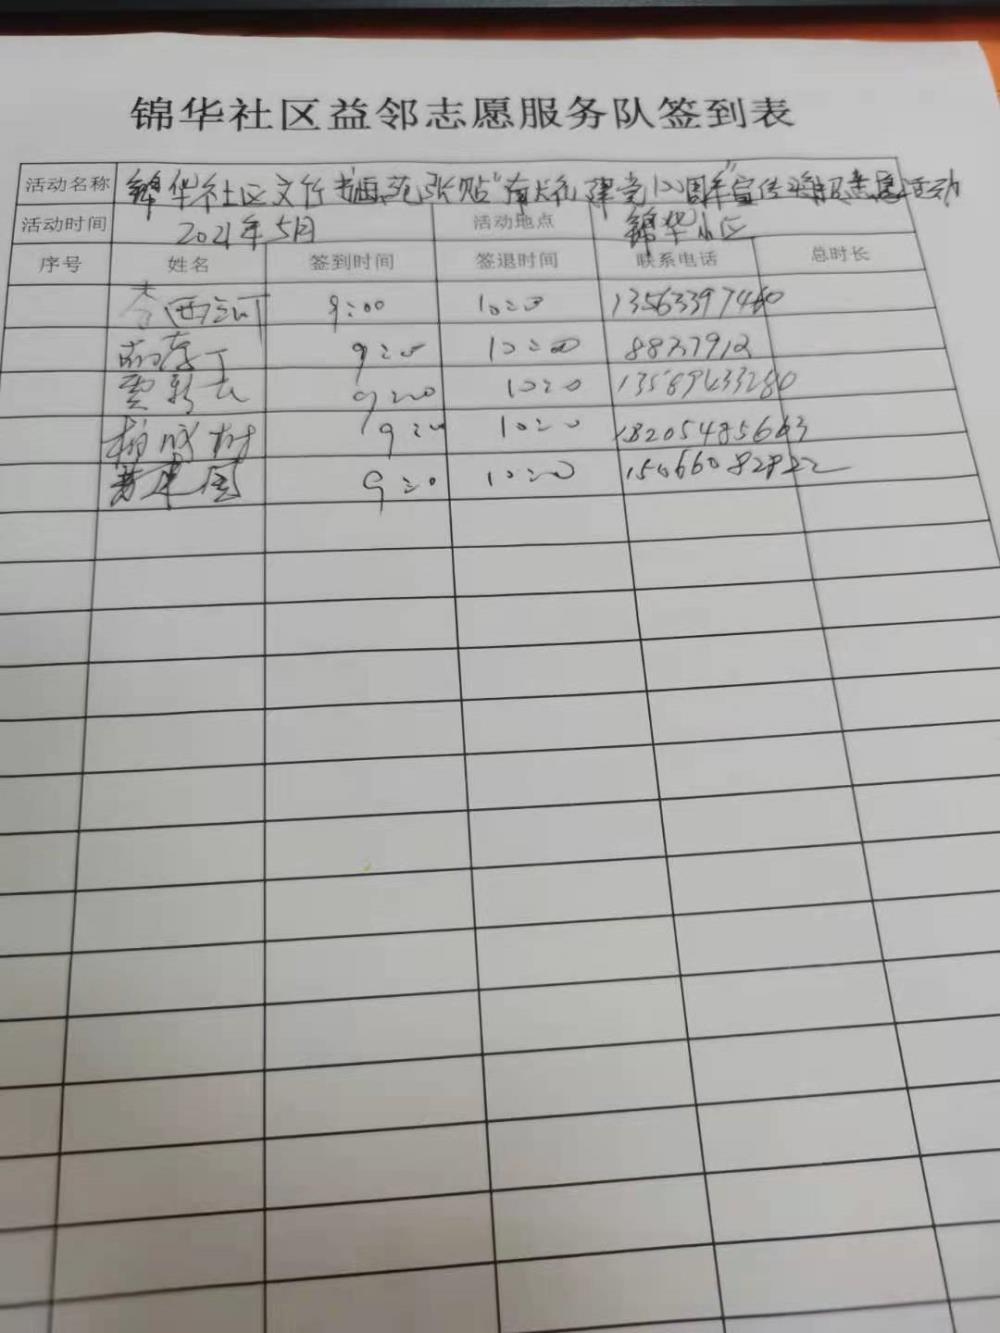 锦华社区益邻志愿服务队签到表
活动名称 锦华社区文竹书画苑张贴“献大礼建党100周年”宣传海报志愿活动
活动时间 2021年5月 活动地点 锦华小区
序号 姓名 签到时间 签退时间 联系电话 总时长
9:00 10:00 13563397460
9:00 10:00 8837912
贾新 9:00 10:00 13589433280
树 9:00 10:00 18205485663
建国 9:00 10:00 15066082822